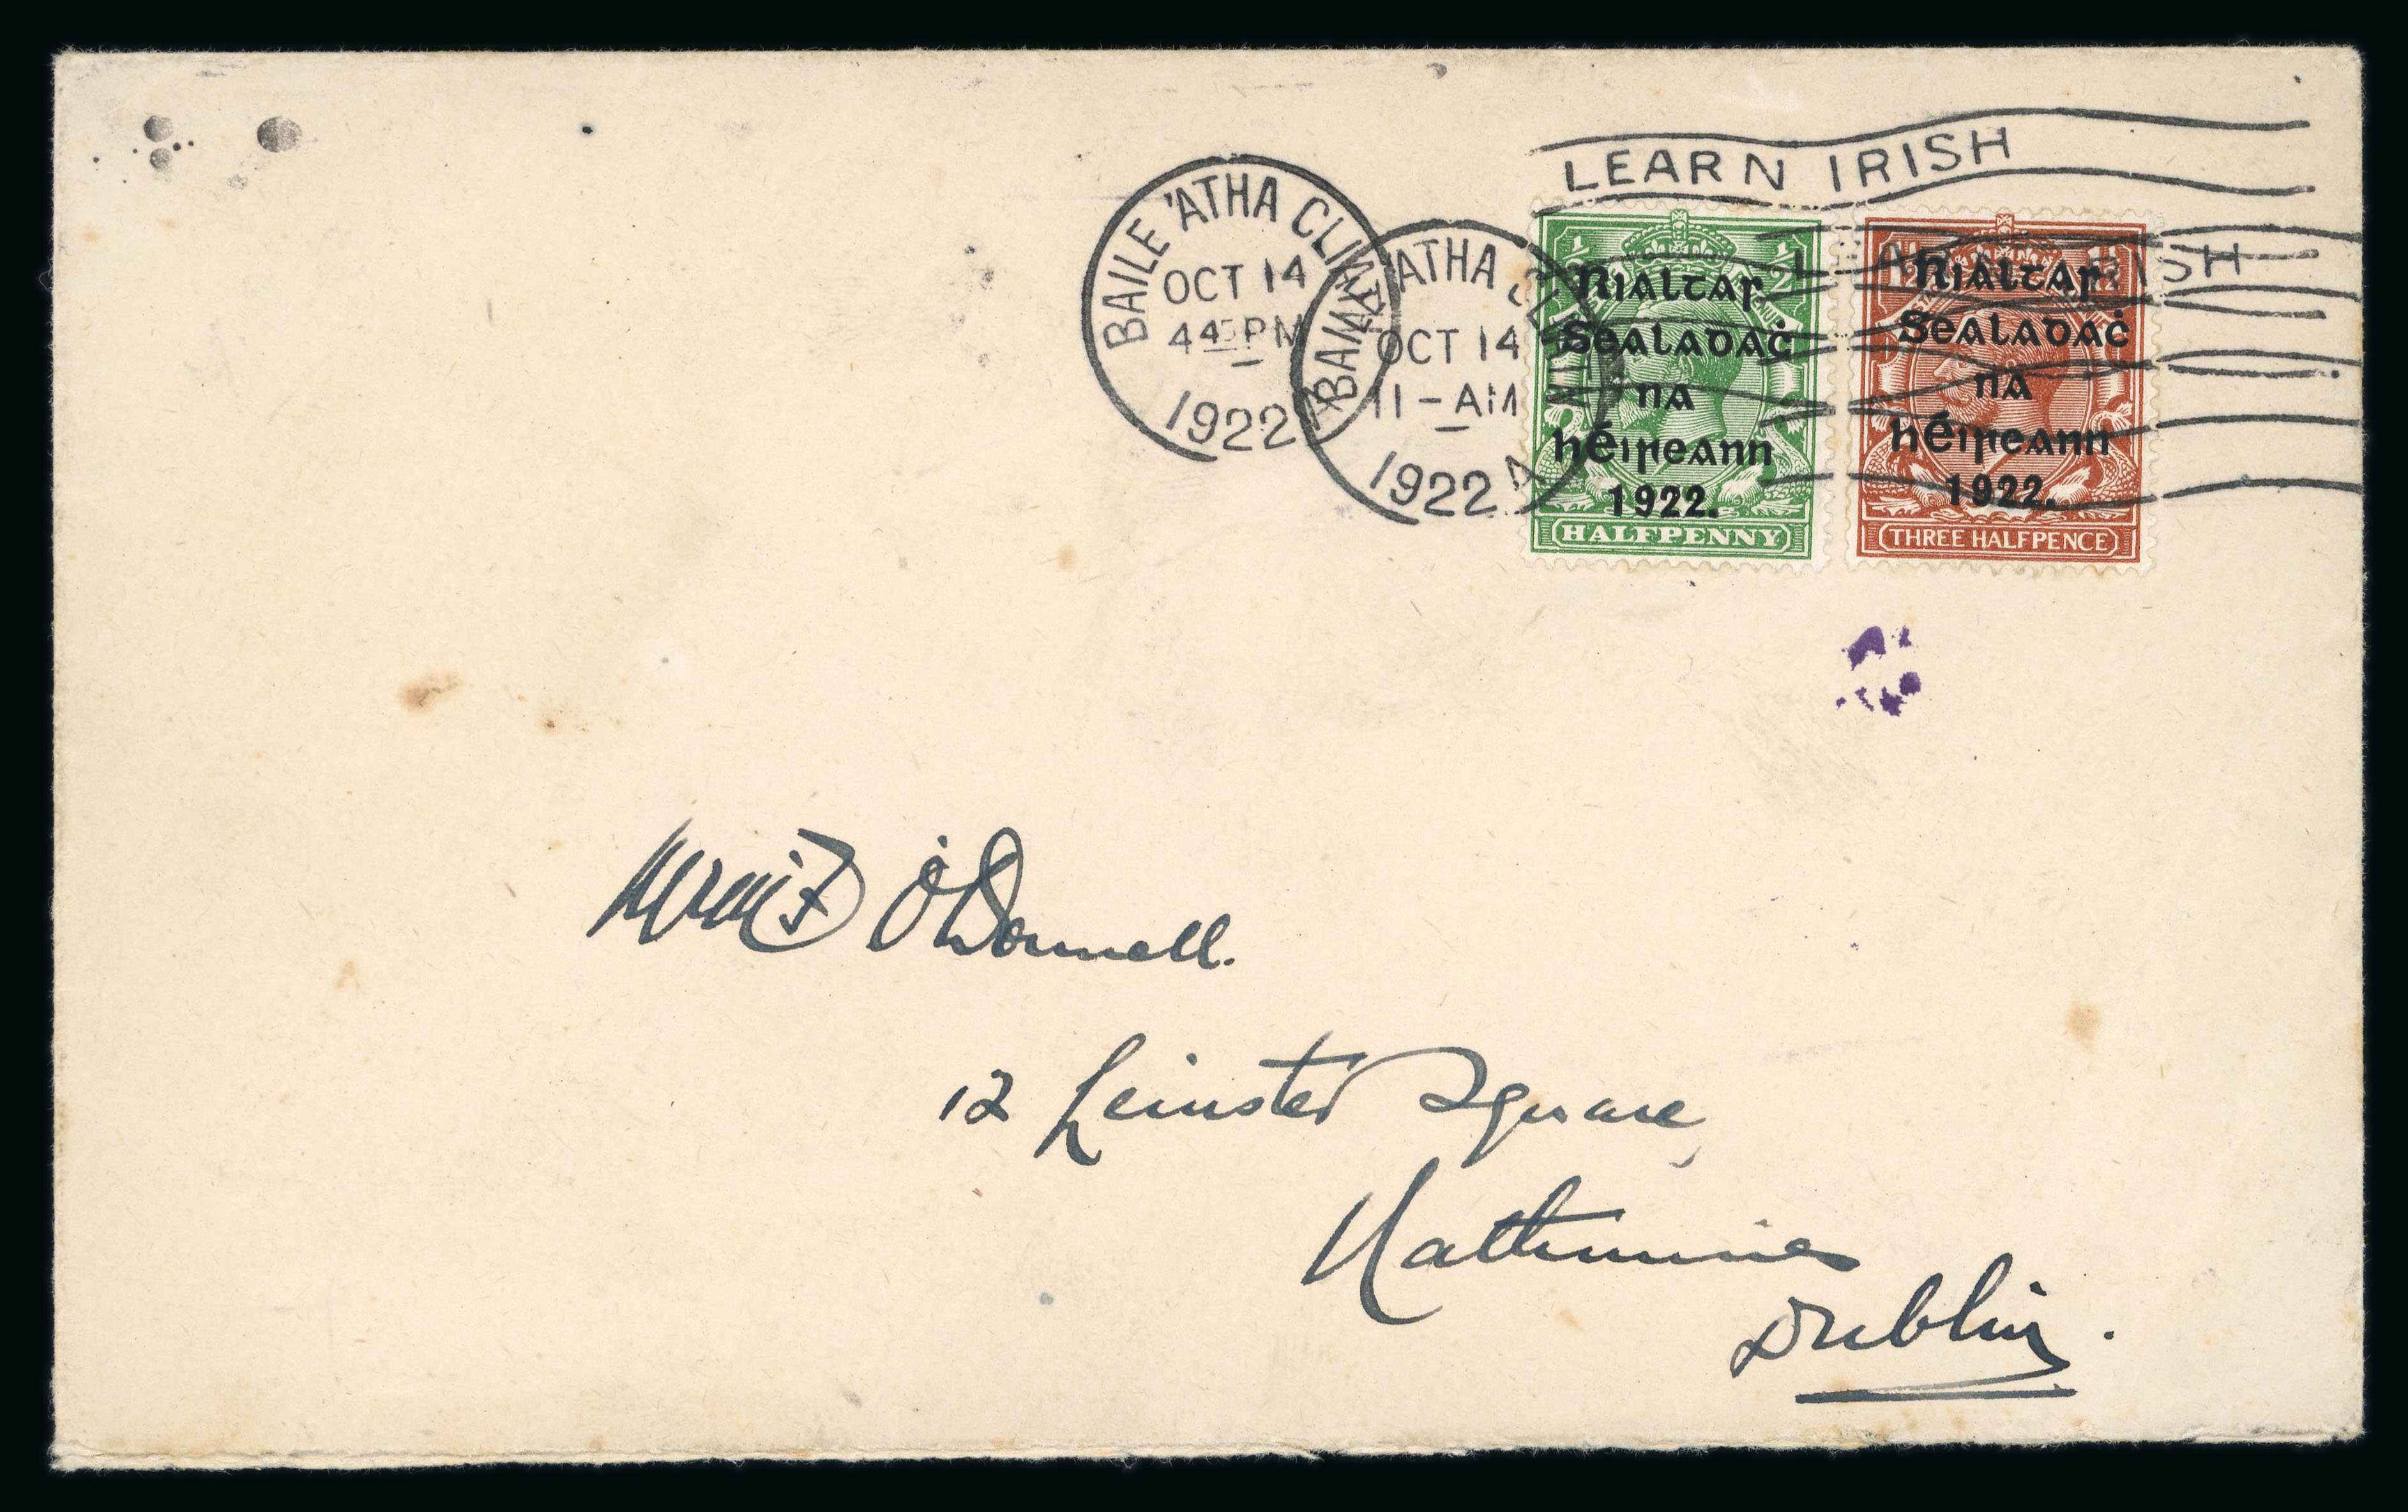 LEARN IRISH
BAILE 'ATHA CLIATH
OCT 14
4 45 PM
1922
BAILE 'ATHA CLIATH
OCT 14
11 - AM
1922
LEARN IRISH
½ ½
Rialtas
Sealadaċ
na
hÉireann
1922.
HALFPENNY
1½ 1½
Rialtas
Sealadaċ
na
hÉireann
1922.
THREE HALFPENCE
F O'Donnell.
12 Leinster Square,
Rathmines
Dublin.